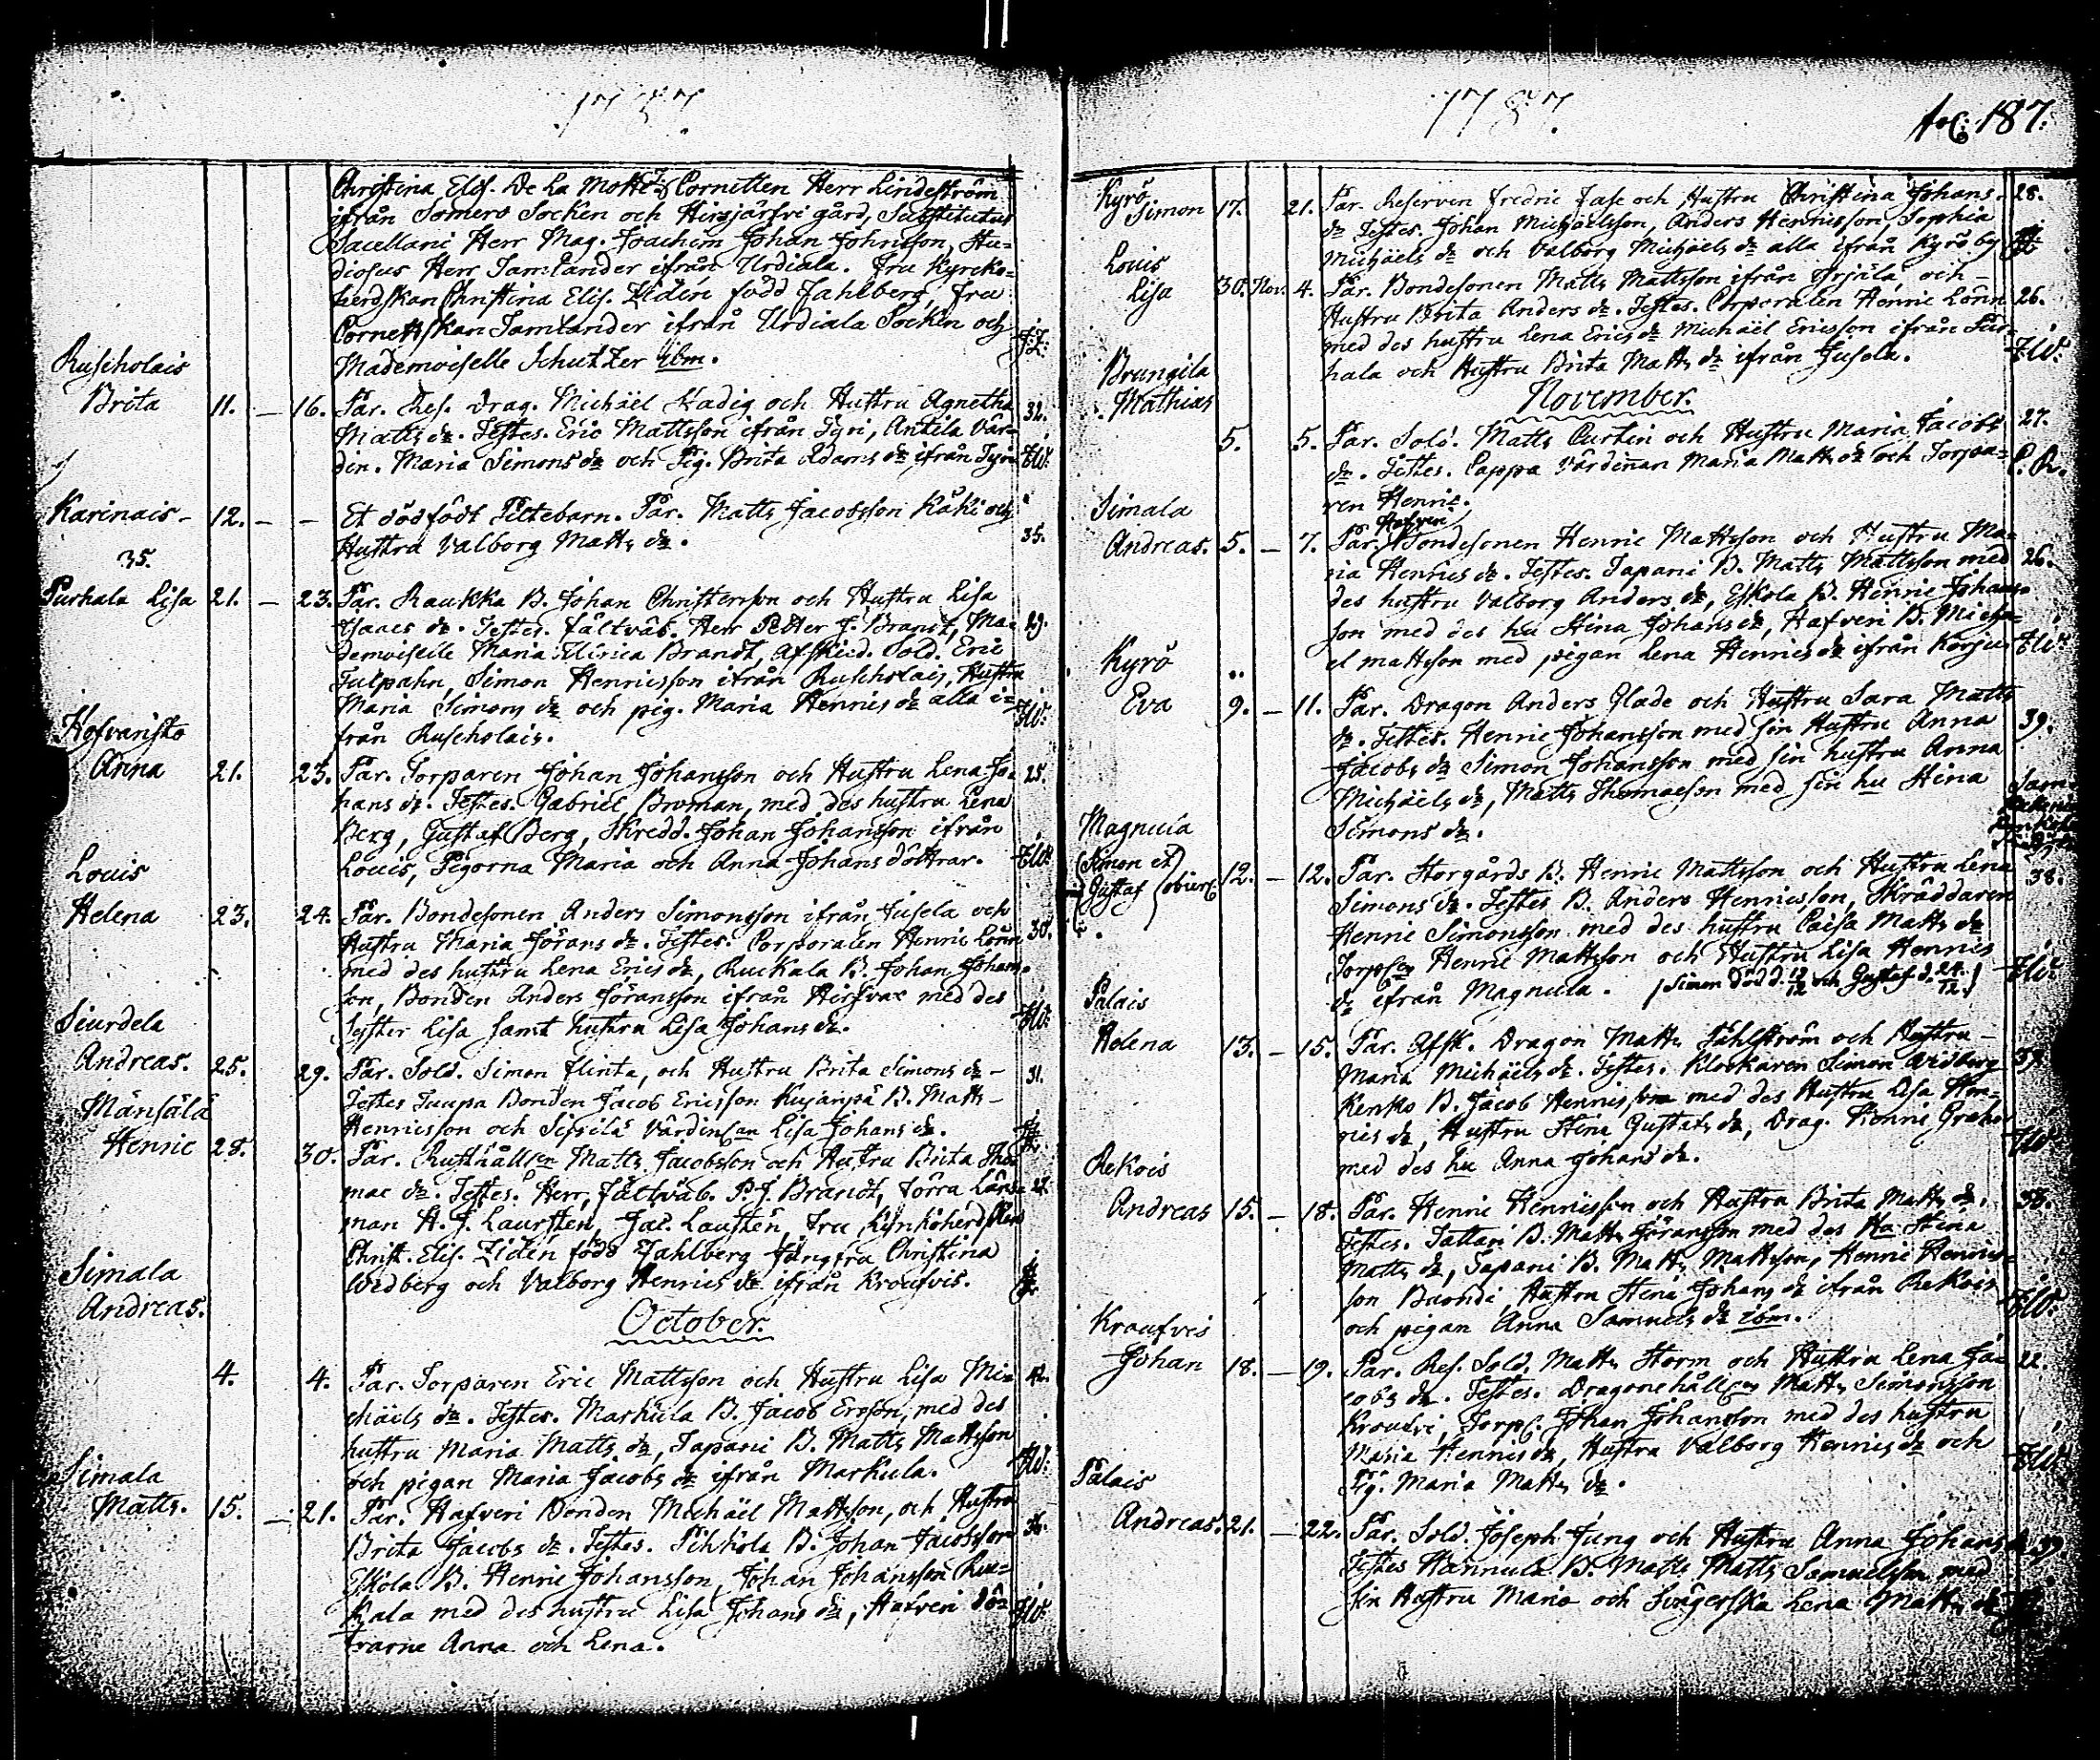 1787.
Christina Elis. De La Motte, Cornetten Herr Lindeström
ifrån Somero Socken och Hirsjärfvi gård, Substitutus
Sacellani Herr Mag. Joachim Johan Johnsson, Stu-
diosus Herr Tamlander ifrån Urdiala. Fru Kyrcko-
herdskan Christina Elis. Zidén född Fahlberg, Fru
Cornettskan Tamlander ifrån Urdiala Socken och
Mademoiselle Schutzer ibm. J:Z:
Ruscholais
Brita 11. — 16. Par. Res. Drag. Michäel Hadig och Hustru Agnetha 32.
Matts dr. Testes. Eric Mattsson ifrån Tyri, Antila Vär-
din. Maria Simons dr och Pig. Brita Adams dr ifrån Tyri
Karinais - 12. — — Et dödfödt Piltebarn. Par. Matts Jacobsson Käki och
35. Hustru Valborg Matts dr. 35.
Purhala Lisa 21. — 23. Par. Raukka B. Johan Christersson och Hustru Lisa
Isaacs dr. Testes. Fältväb. Herr Petter J. Brandt, Ma- 29.
demoiselle Maria Ulrica Brandt, Afskied. Sold. Eric
Tulpahn, Simon Henricsson ifrån Ruscholais, Hustru
Maria Simons dr och pig. Maria Henrics dr alla i-
från Ruscholais.
Hofvaristo
Anna 21. 23. Par. Torparen Johan Johansson och Hustru Lena Jo- 25.
hans dr. Testes. Gabriel Broman, med des hustru Lena
Berg, Gustaf Berg, Skredd. Johan Johansson ifrån
Louis, Pigorna Maria och Anna Johans döttrar.
Louis
Helena 23. 24. Par. Bondesonen Anders Simonsson ifrån Jusela och
Hustru Maria Jörans dr. Testes. Corporalen Henric Lönn 30.
med des hustru Lena Erics dr, Ruckala B. Johan Johans-
son, Bonden Anders Jöransson ifrån Hirfvas med des
Syster Lisa samt hustru Lisa Johans dr.
Siurdela
Andreas. 25. 29. Par. Sold. Simon Flinta, och Hustru Brita Simons dr - 31.
Testes Tuupa Bonden Jacob Ericsson Kujanpä B. Matts -
Henricsson och Sipilä Värdinan Lisa Johans dr.
Mänsälä
Henric 28. 30. Par. Rusthållen Matts Jacobsson och Hustru Brita Tho-
mae dr. Testes. Herr, Fältväb. P. J. Brandt, förra Läns-
man H. J. Laursten, Jac. Lausten, Fru Kyrckoherdskan
Christ. Elis. Zidén född Fahlberg Jungfru Christina
Widberg och Valborg Henrics dr ifrån Kroufvis.
October.
Simala
Andreas.
4. 4. Par. Torparen Eric Mattsson och Hustru Lisa Mi-
chäels dr. Testes. Markula B. Jacob Ersson, med des
hustru Maria Matts dr, Tapani B. Matts Mattsson
och pigan Maria Jacobs dr ifrån Markula.
Simala
Matts. 15. — 21. Par. Hafveri Bonden Michäel Mattsson, och Hustru
Brita Jacobs dr. Testes. Pihkola B. Johan Jacobsson
Eskola B. Henric Johansson, Johan Johansson Ruc-
kala med des hustru Lisa Johans dr, Hafveri Dö-
trarne Anna och Lena.
1787.
187.
Kyrö
Simon 17. 21. Par. Reserven Fredric Fase och Hustru Christina Johans 28.
dr. Testes. Johan Michäelsson, Anders Henricsson, Sophia
Michäels dr och Valborg Michäels dr alla ifrån Kyrö by
Louis
Lisa 30. Nov. 4. Par. Bondesonen Matts Mattsson ifrån Orjälä och -
Hustru Brita Anders dr. Testes. Corporalen Henric Lönn 26.
med des hustru Lena Erics dr Michäel Ericsson ifrån Pur-
hala och Hustru Brita Matts dr ifrån Jusela.
November.
Brungila
Mathias
5. 5. Par. Sold. Matts Curtin och Hustru Maria Jacobs 27.
dr. Testes. Cappa Värdinnan Maria Matts dr och Torpa- C. R.
ren Henric.
Simala
Hafveri
Andreas. 5. — 7. Par. Bondesonen Henric Mattsson och Hustru Ma-
ria Henrics dr. Testes. Tapani B. Matts Mattsson med 26.
des hustru Valborg Anders dr, Eskola B. Henric Johans-
son med des hu Stina Johans dr, Hafveri B. Micha-
el mattsson med pigan Lena Henrics dr ifrån Korjus
Kyrö
Eva 9. — 11. Par. Dragon Anders Glade och Hustru Sara Matts
dr. Testes. Henric Johansson med sin Hustru Anna 39.
Jacobs dr Simon Johansson med sin hustru Anna
Michäels dr, Matts Thomaeson med sin hu Stina
Simons dr.
Magnula
Simon et
Gustaf obiere 12. — 12. Par. Storgårds B. Henric Mattsson och Hustru Lena 38.
Simons dr. Testes B. Anders Henricsson, Skräddaren
Henric Simonsson med des hustru Caisa Matts dr
Torpen Henric Mattsson och Hustru Lisa Henrics
dr ifrån Magnula. (Simon död d. 12/12 och Gustaf d. 24/12.)
Palais
Helena 13. — 15. Par. Afsk. Dragon Matts Fahlström och Hustru -
Maria Michäels dr. Testes. Klockaren Simon Widberg
Kenko B. Jacob Henricsson med des Hustru Lisa Hen-
rics dr, Hustru Stina Gustafs dr, Drag. Henric Grahn
med des hu Anna Johans dr.
Rekois
Andreas 15. — 18. Par. Henric Henricsson och Hustru Brita Matts dr. 38.
Testes. Tattari B. Matts Jöransson med des Hu Stina
Matts dr, Tapani B. Matts Mattsson, Henric Henrics-
son Buondi, Hustru Stina Johans dr ifrån Rekois
och pigan Anna Samuels dr ibm.
Kroufvis
Johan 18. — 19. Par. Res. Sold. Matts Storm och Hustru Lena Ja- 22.
cobs dr. Testes. Dragonehållen Matts Simonsson
Kroufvi, Torp. Johan Johansson med des hustru
Maria Henrics dr, Hustru Valborg Henrics dr och
Pig. Maria Matts dr.
Palais
Andreas. 21. — 22. Par. Sold. Joseph Jung och Hustru Anna Johans dr 39.
Testes Hannula B. Matts Matts Samuelsson med
sin Hustru Maria och Svägerska Lena Matts dr